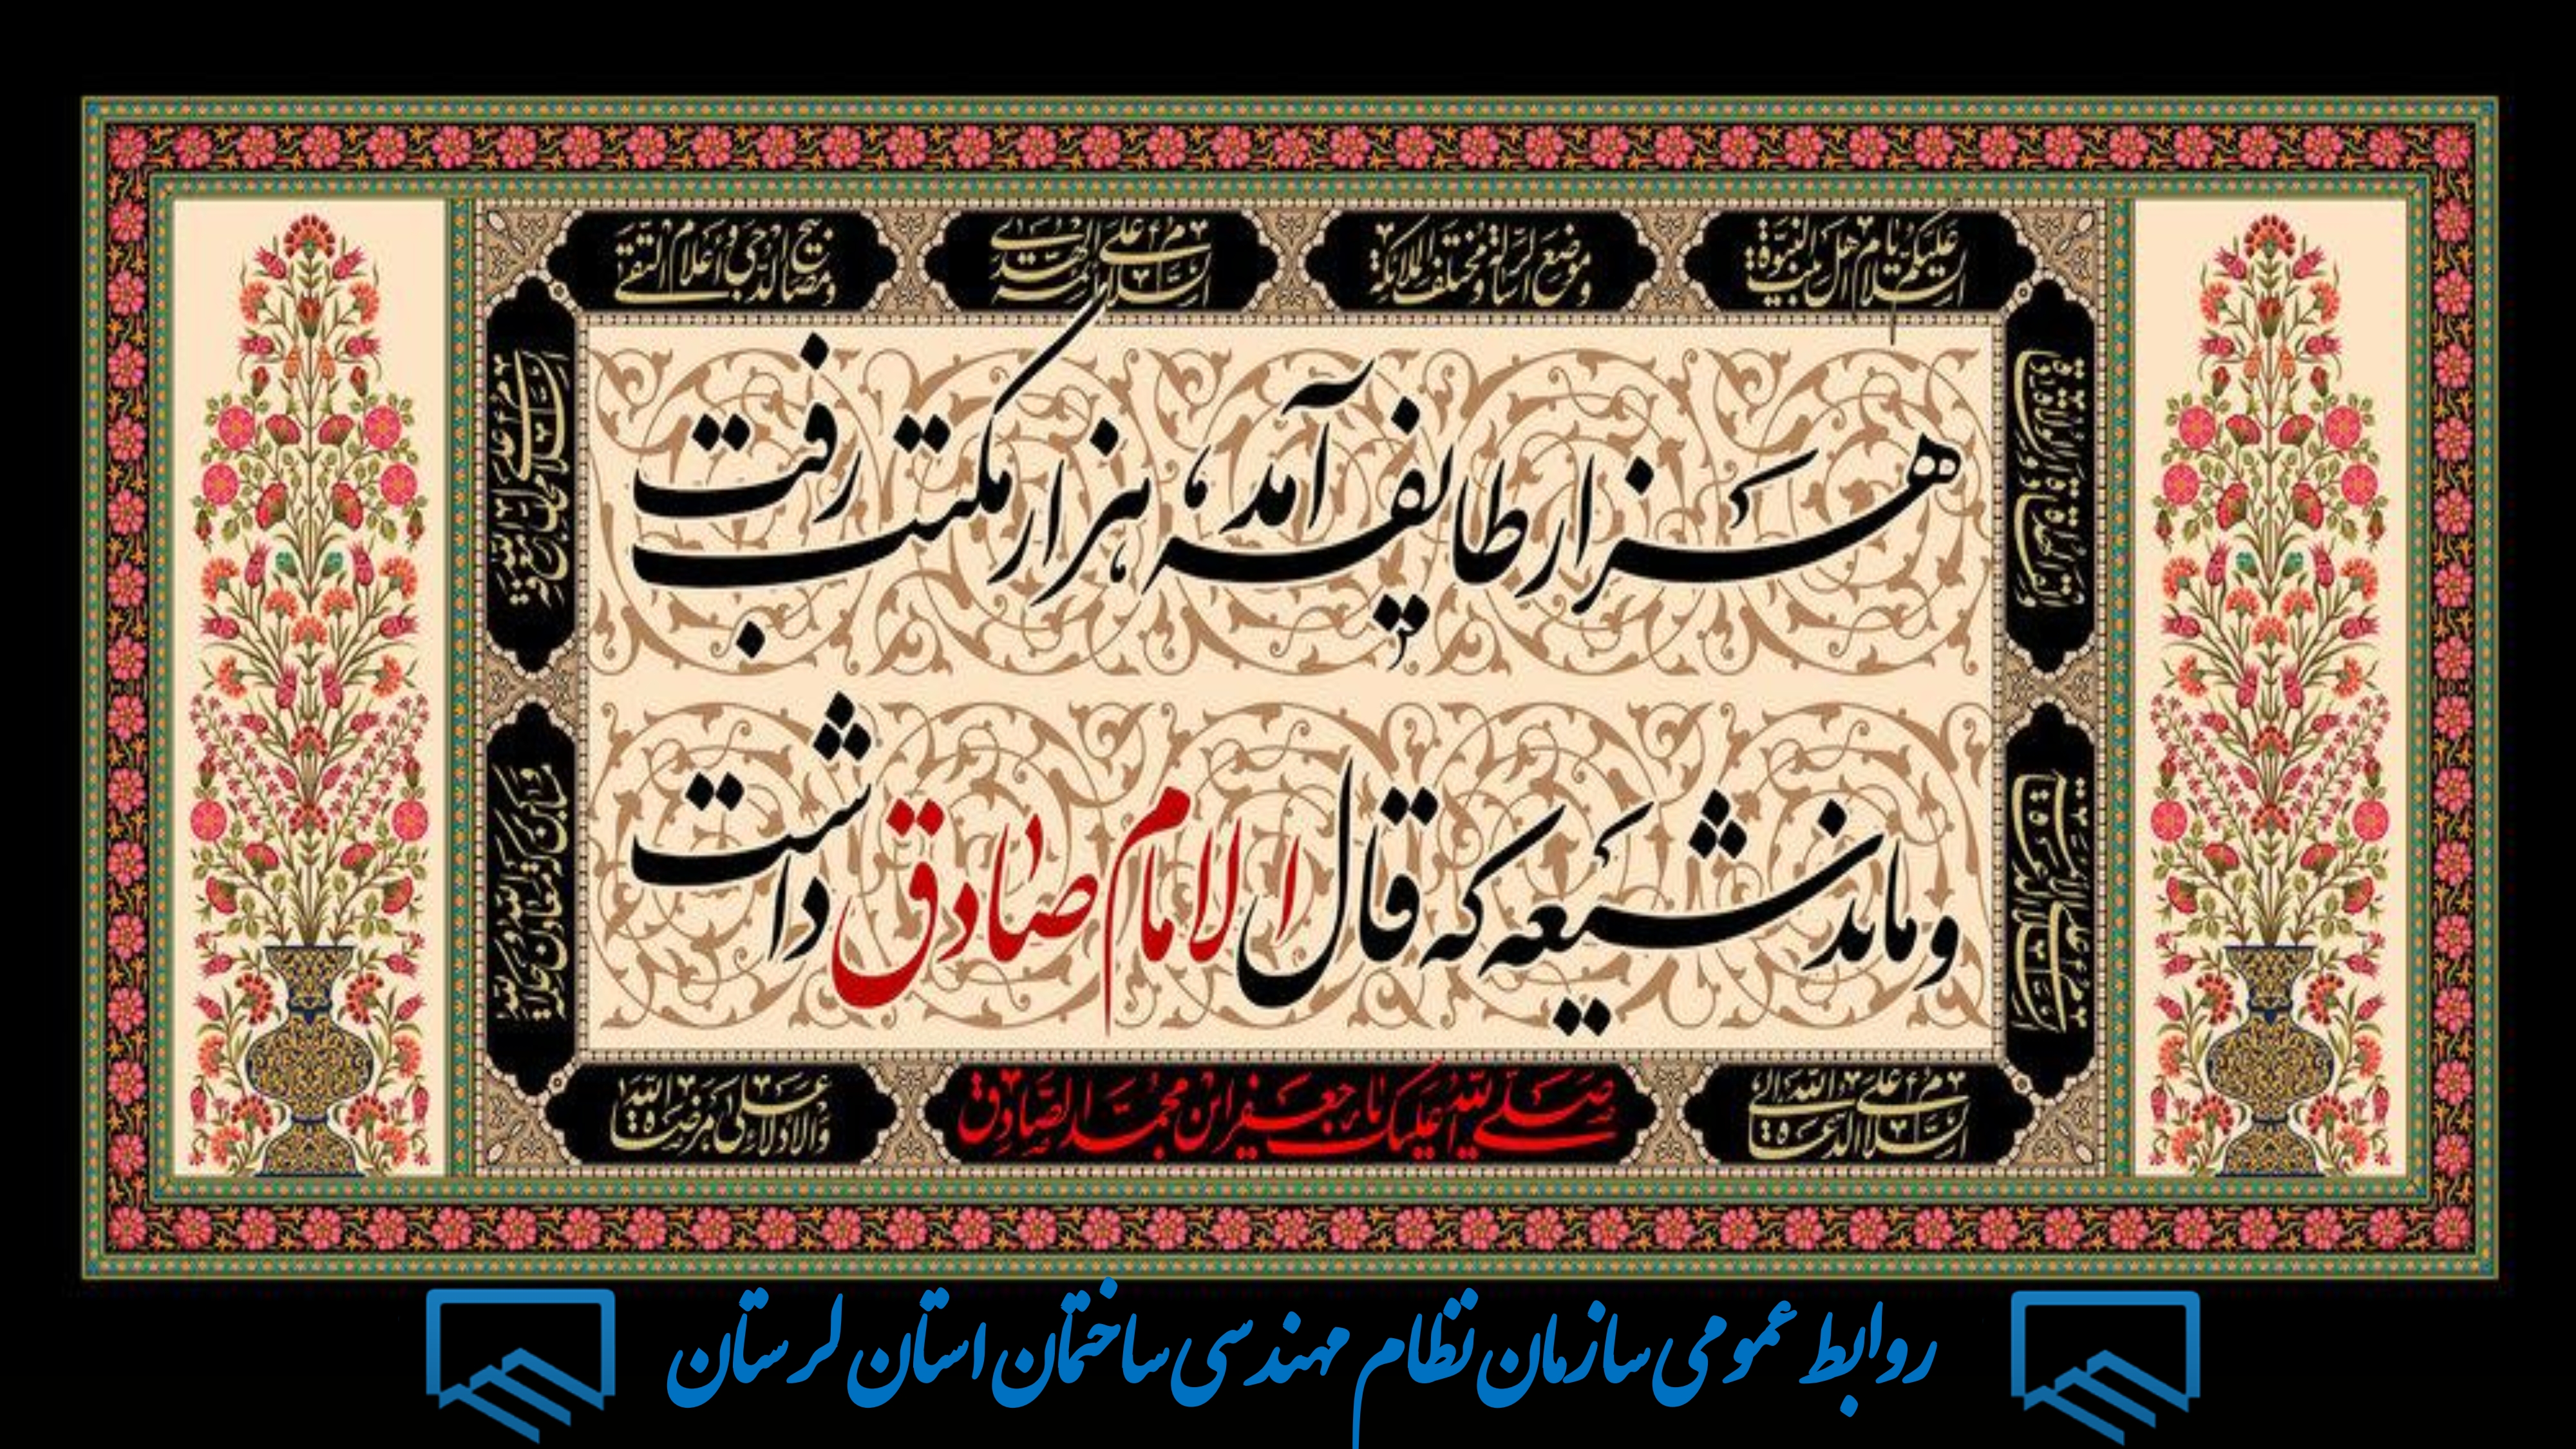 السلام علیکم یا اهل بیت النبوة
و موضع الرسالة و مختلف الملائکة
السلام علی ائمة الهدی
و مصابیح الدجی و اعلام التقی
هزار طایفه آمد، هزار مکتب رفت
و ماند شیعه که قال الامام صادق داشت
السلام علی محال معرفة الله
و مساکن برکة الله و معادن حکمة الله
السلام علی الدعاة الی الله
صلی الله علیک یا جعفر ابن محمد الصادق
والادلاء علی مرضاة الله
روابط عمومی سازمان نظام مهندسی ساختمان استان لرستان